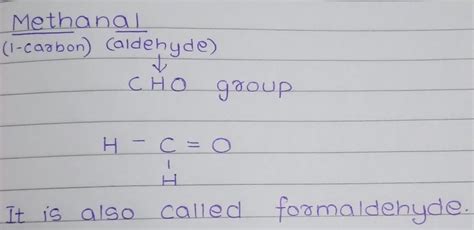 Methanal
(1-carbon) (aldehyde)
↓
CHO group
H - C = O
|
H
It is also called formaldehyde.